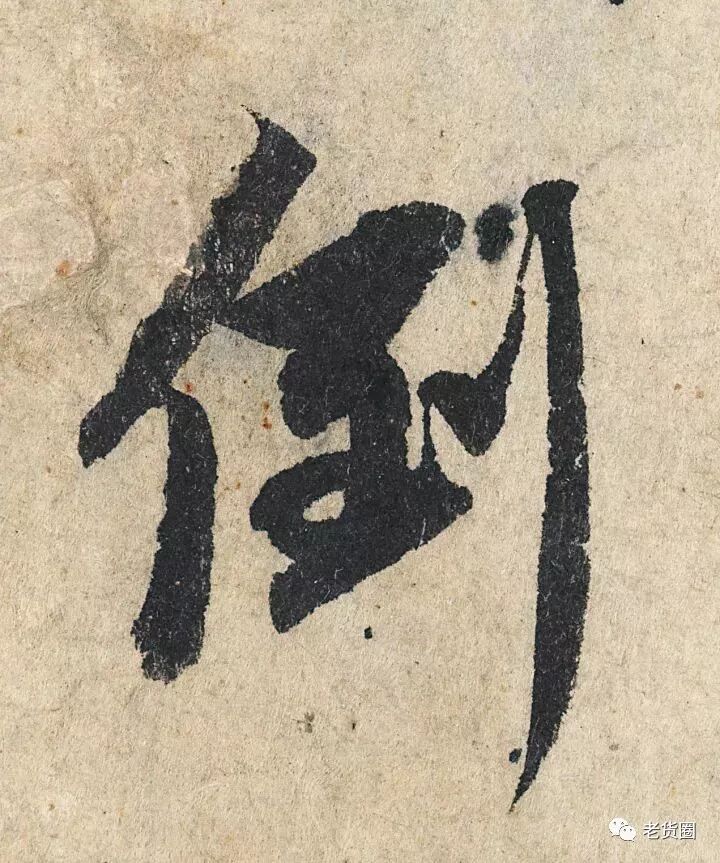 倒
老货圈